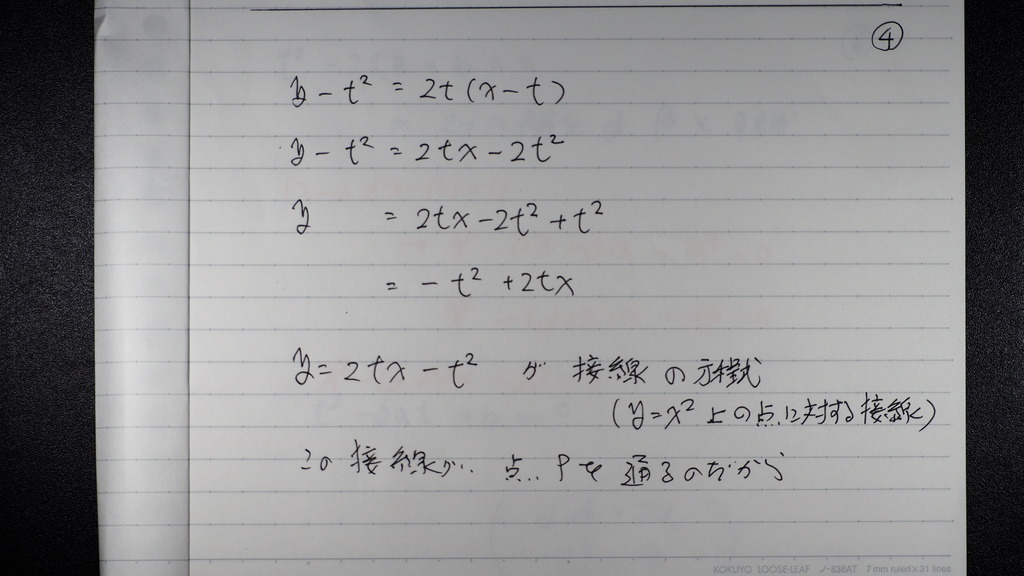 ④
y - t² = 2t(x - t)
y - t² = 2tx - 2t²
y = 2tx - 2t² + t²
= - t² + 2tx
y = 2tx - t² が 接線の方程式
(y = x² 上の点に対する接線)
この接線が、点Pを通るのだから
KOKUYO LOOSE-LEAF ノ-836AT 7 mm ruled×31 lines